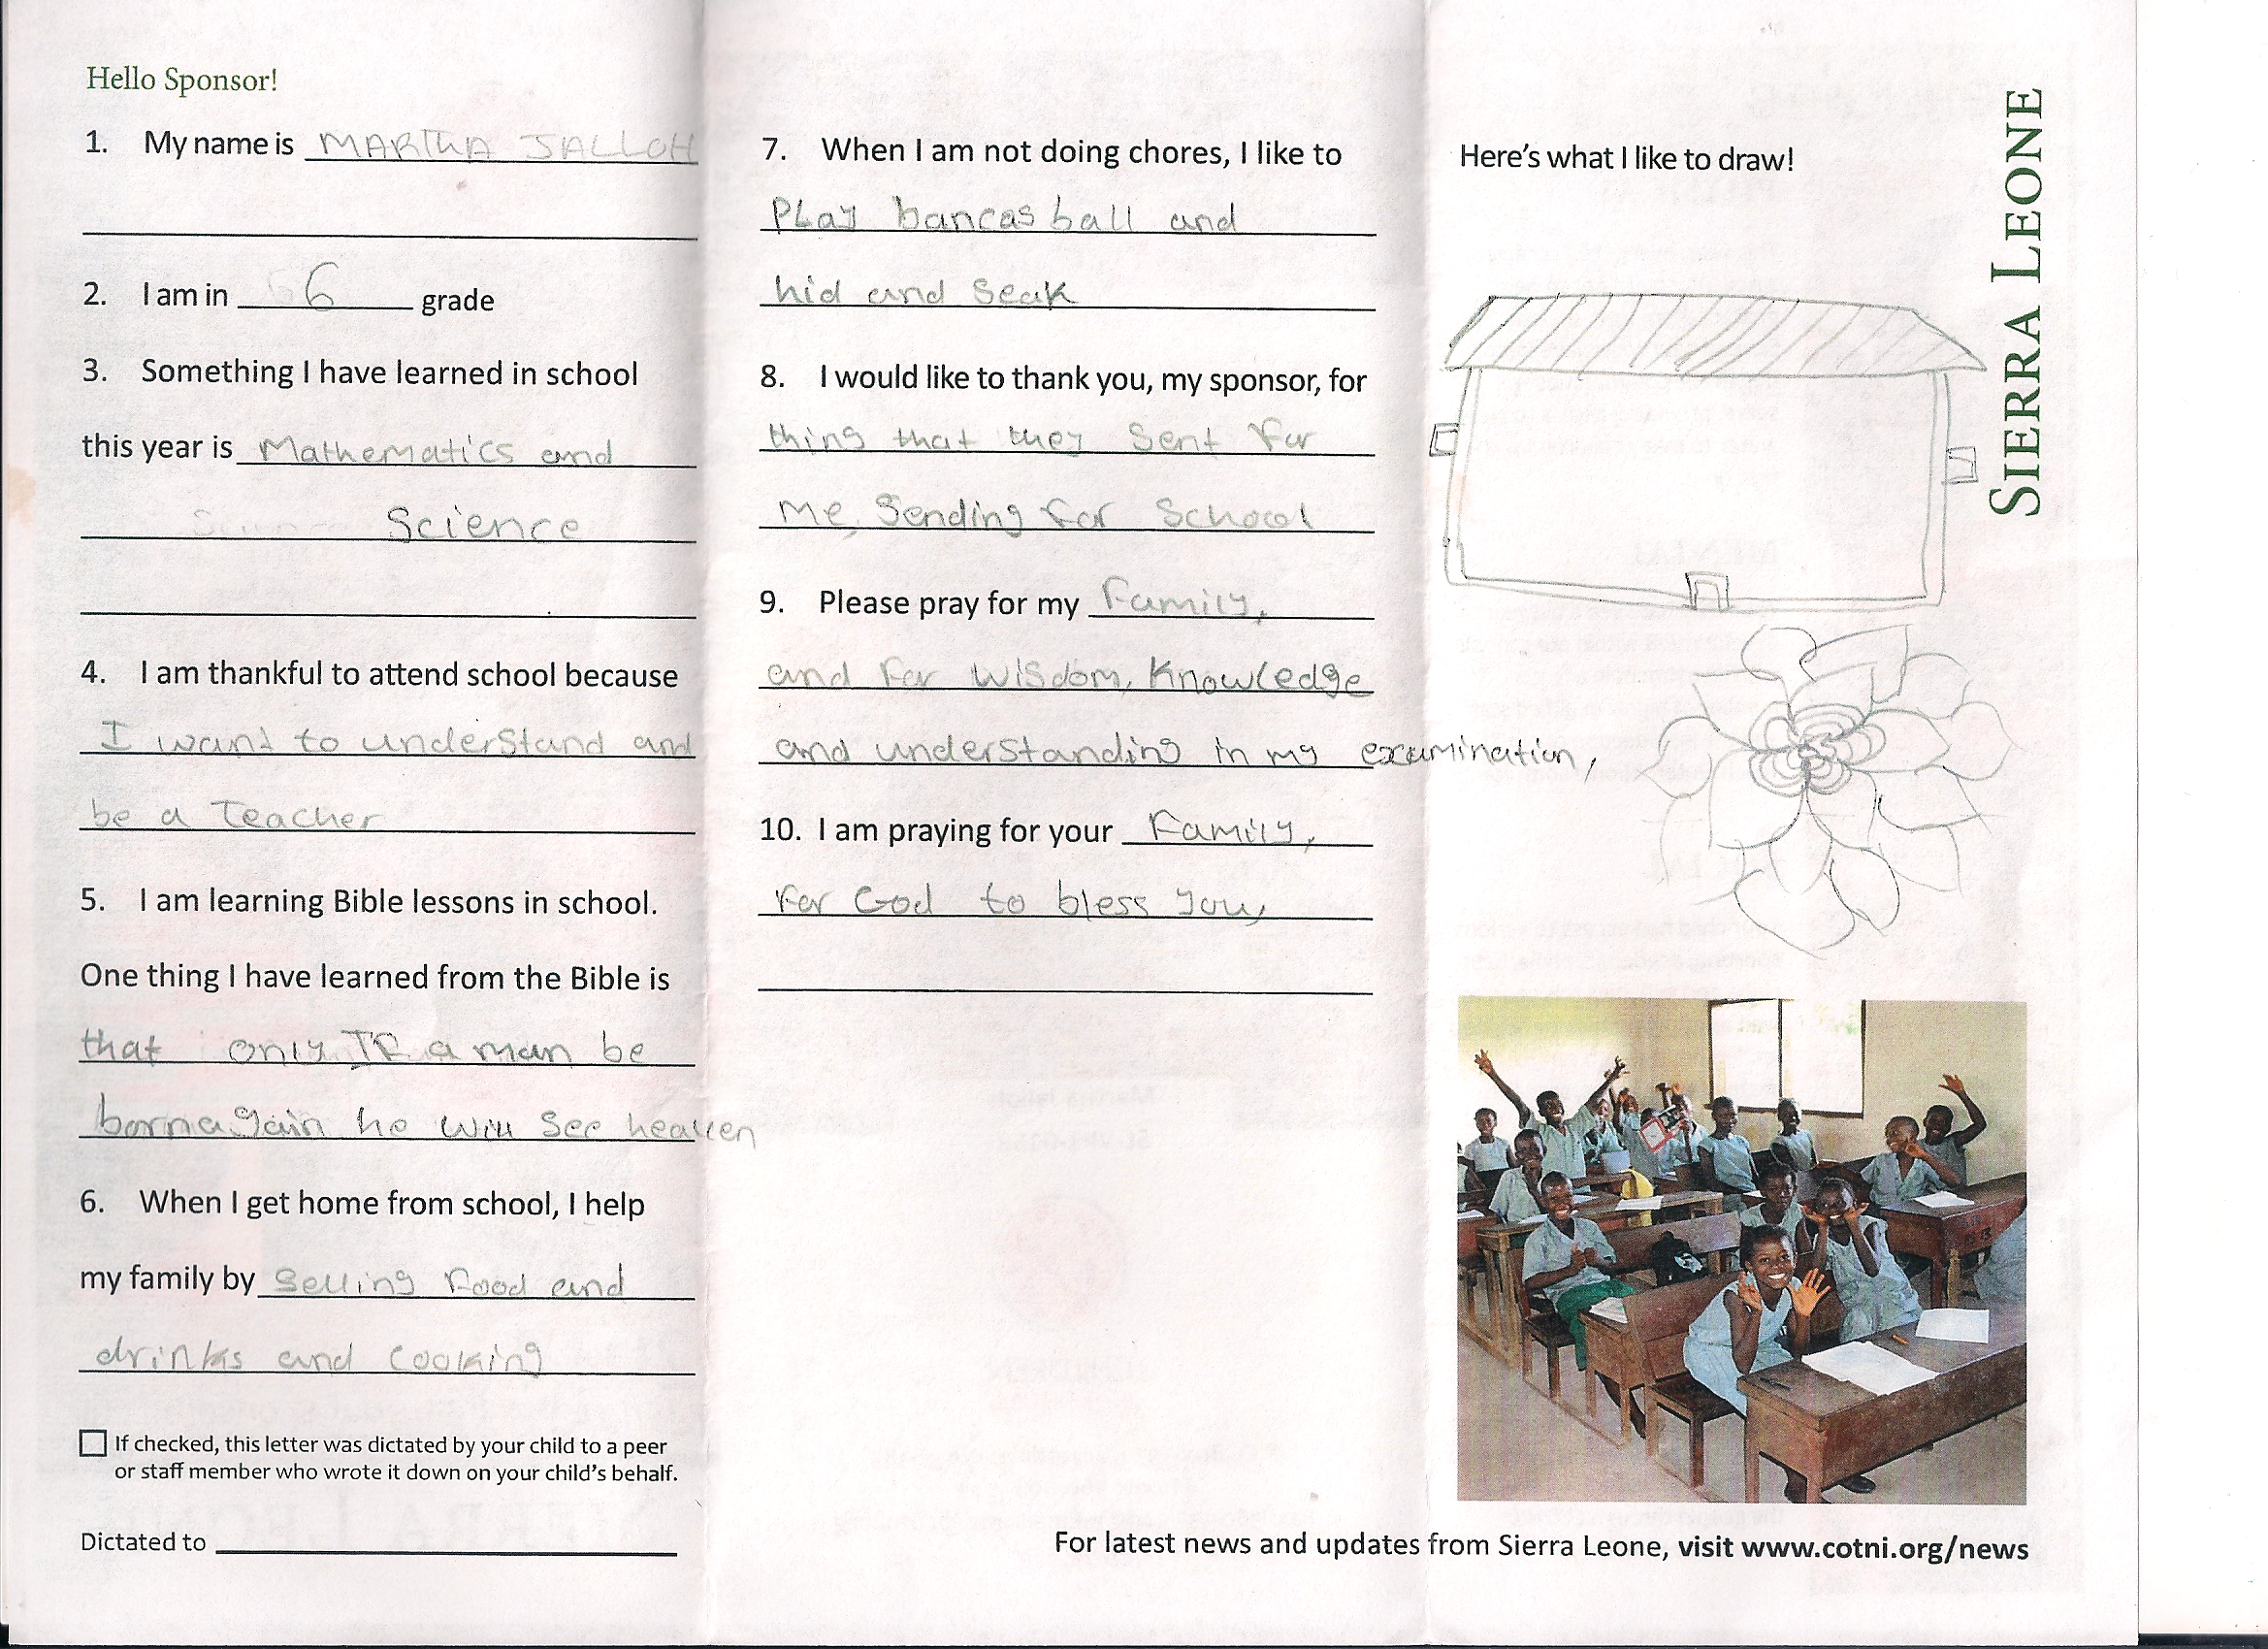 Hello Sponsor!
1. My name is MARTHA JALLOH
2. I am in 6 grade
3. Something I have learned in school
this year is Mathematics and
Science
4. I am thankful to attend school because
I want to understand and
be a Teacher
5. I am learning Bible lessons in school.
One thing I have learned from the Bible is
that only IF a man be
born again he will see heaven
6. When I get home from school, I help
my family by Selling Food and
drinks and cooking
If checked, this letter was dictated by your child to a peer
or staff member who wrote it down on your child's behalf.
Dictated to
7. When I am not doing chores, I like to
PLay bancas ball and
hid and seak
8. I would like to thank you, my sponsor, for
thing that they sent for
me, Sending for School
9. Please pray for my Family,
and for wisdom, Knowledge
and understanding in my examination,
10. I am praying for your Family,
For God to bless you,
Here's what I like to draw!
SIERRA LEONE
For latest news and updates from Sierra Leone, visit www.cotni.org/news